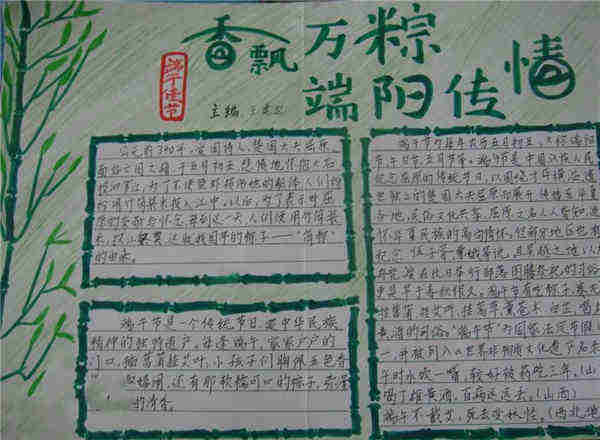 香飘万粽
端阳传情
端午佳节
主编
公元前340年，爱国诗人、楚国大夫屈原
面临亡国之痛，于五月初五，悲愤地怀抱大石
投汨罗江，为了不使鱼虾损伤他的躯体，人们纷
纷用竹筒装米投入江中，以后，为了表示对屈
原的崇敬与怀念，每到这一天，人们便用竹筒装
米，投江祭奠，这就我国最早的粽子——“筒粽”
的由来。
端午节是一个传统节日，是中华民族
精神的独特遗产。每逢端午，家家户户的
门口，插菖蒲挂艾叶，小孩子们胸佩五色香
还有那软糯可口的粽子，
的清香。
端午节为每年农历五月初五，又称端阳
节、午日节、五月节等。端午节是中国汉族人民
纪念屈原的传统节日，以围绕才华横溢、遗
世独立的楚国大夫屈原而展开，传播至华夏
各地，民俗文化共享，屈原之名人人皆知，追
怀华夏民族的高洁情怀。但部分地区也有
纪念伍子胥、曹娥等说，
端午节有吃粽子，赛龙
挂菖蒲、艾叶，挂高草、薰苍术、白芷，喝
黄酒的习俗。“端午节”为国家法定节假
一，并被列入世界非物质文化遗产名录
午时水喝一嘴，较好补药吃三年。（山
喝了雄黄酒，百病远远丢。（山西）
端午不戴艾，死去变妖怪。（西北地